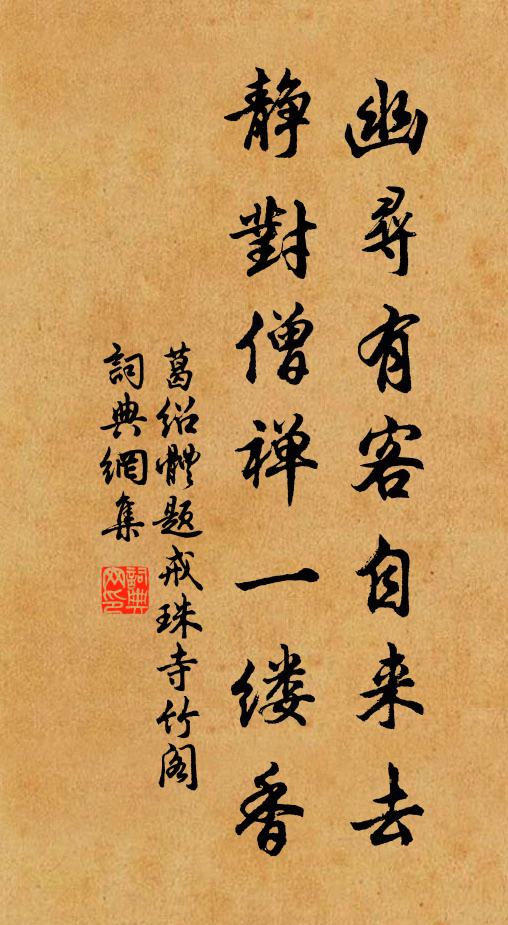 幽尋有客自来去
静對僧禅一缕香
葛绍體题戒珠寺竹阁
詞典網集
詞典网印